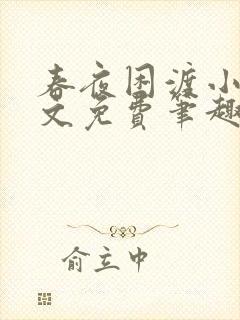 春夜困渡小
文免费笔趣
俞立中